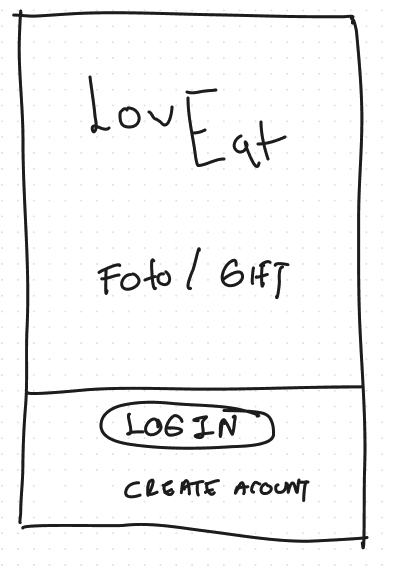 LovEat
Foto / GIFT
LOGIN
CREATE ACOUNT